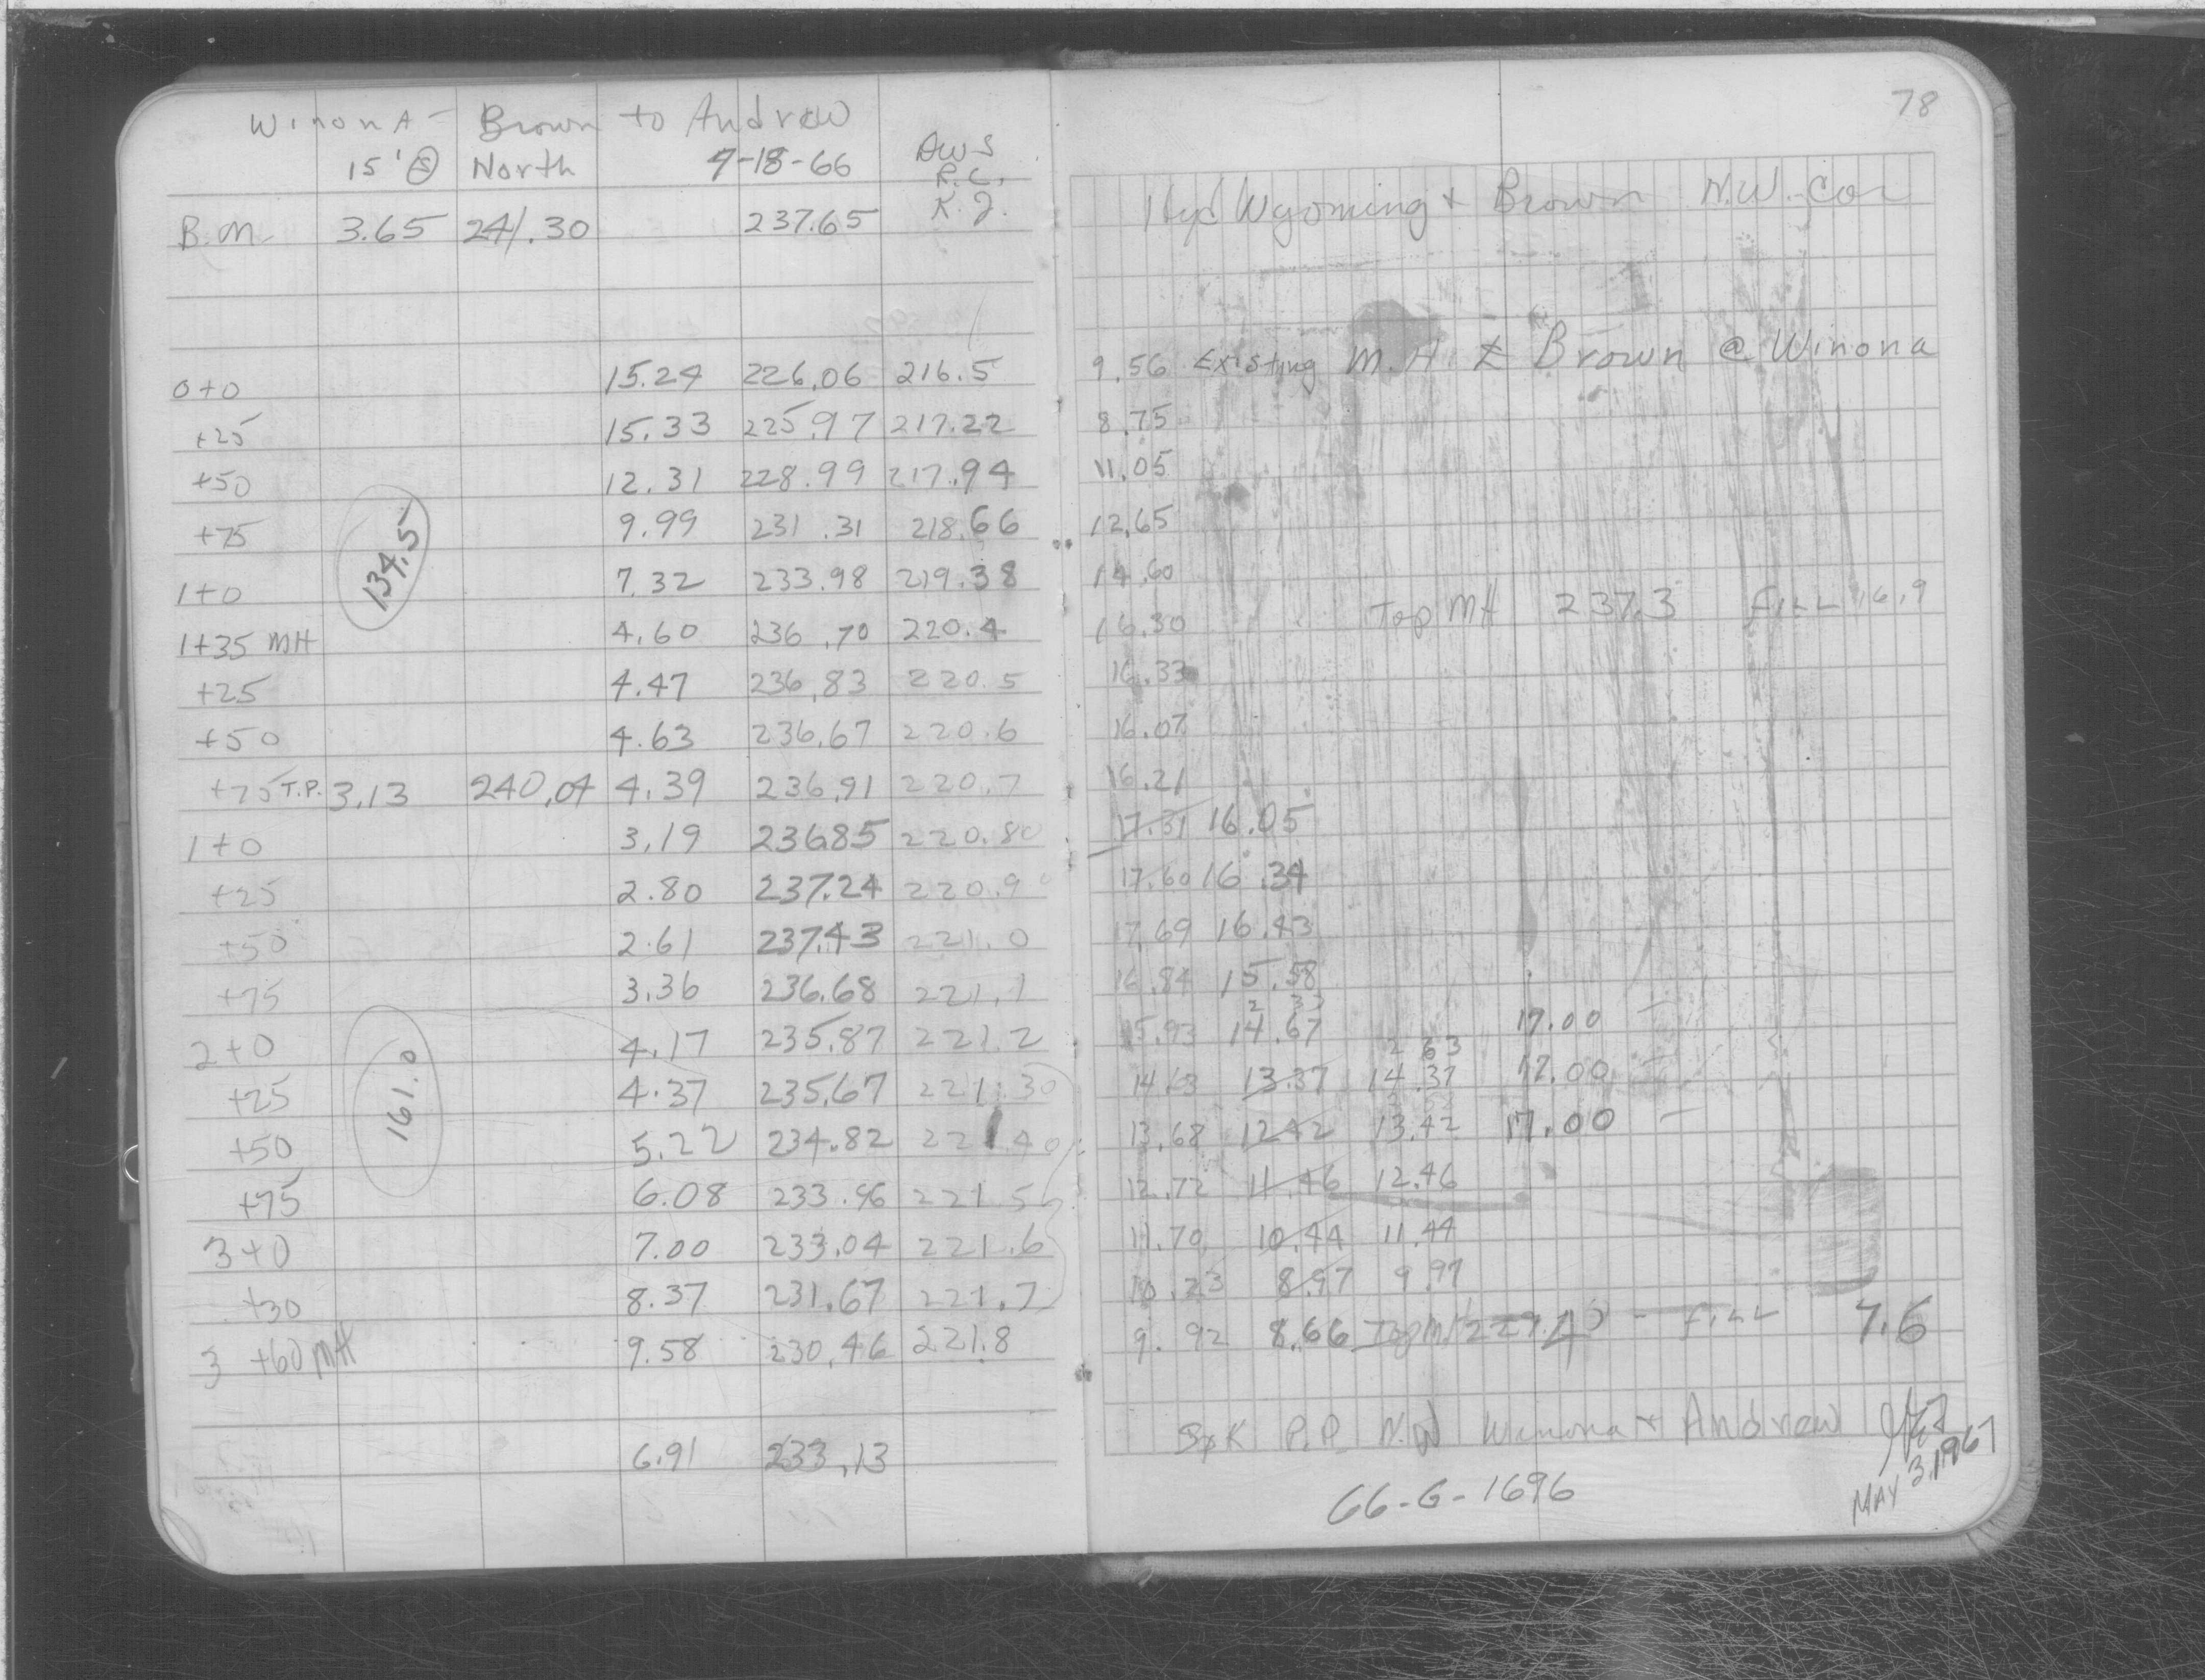 Winona - Brown to Andrew
15' Ⓢ North 7-18-66 AWS
R.C.
K.J.
B.M. 3.65 241.30 237.65
0+0 15.24 226.06 216.5
+25 15.33 225.97 217.22
+50 12.31 228.99 217.94
+75 9.99 231.31 218.66
134.5
1+0 7.32 233.98 219.38
1+35 MH 4.60 236.70 220.4
+25 4.47 236.83 220.5
+50 4.63 236.67 220.6
+75 T.P. 3.13 240.04 4.39 236.91 220.7
1+0 3.19 236.85 220.80
+25 2.80 237.24 220.9
+50 2.61 237.43 221.0
+75 3.36 236.68 221.1
2+0 4.17 235.87 221.2
161.0
+25 4.37 235.67 221.30
+50 5.22 234.82 221.40
+75 6.08 233.96 221.5
3+0 7.00 233.04 221.6
+30 8.37 231.67 221.7
3+60 MH 9.58 230.46 221.8
6.91 233.13
78
Hyd Wyoming + Brown N.W. Cor
9.56 Existing M.H. ℄ Brown @ Winona
8.75
11.05
12.65
14.60
16.30 Top MH 237.3 Fill 16.9
16.33
16.07
16.21
17.31 16.05
17.60 16.34
17.69 16.43
16.84 15.58
2 33
15.93 14.67 17.00
2 63
14.63 13.37 14.37 17.00
13.68 12.42 13.42 17.00 -
12.72 11.46 12.46
11.70 10.44 11.44
10.23 8.97 9.97
9.92 8.66 Top MH 229.4 - Fill 7.6
Spk P.P. N.W Winona + Andrew
66-G-1696
MAY 3, 1967